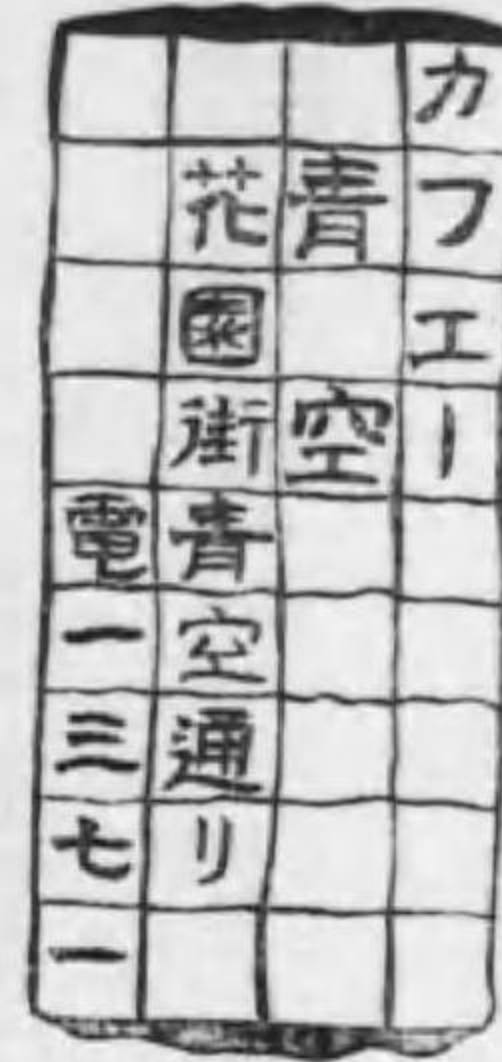 カフエー
青空
花園街青空通リ
電一三七一